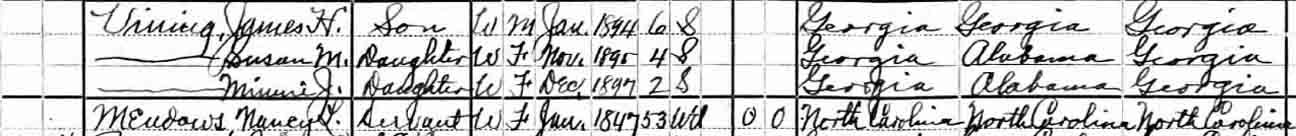 Vining, James H. Son W M Jan. 1894 6 S Georgia Georgia Georgia
Susan M. Daughter W F Nov. 1895 4 S Georgia Alabama Georgia
Minnie J. Daughter W F Dec. 1897 2 S Georgia Alabama Georgia
Meadows, Nancy Servant W F Jan. 1847 53 Wd 0 0 North Carolina North Carolina North Carolina